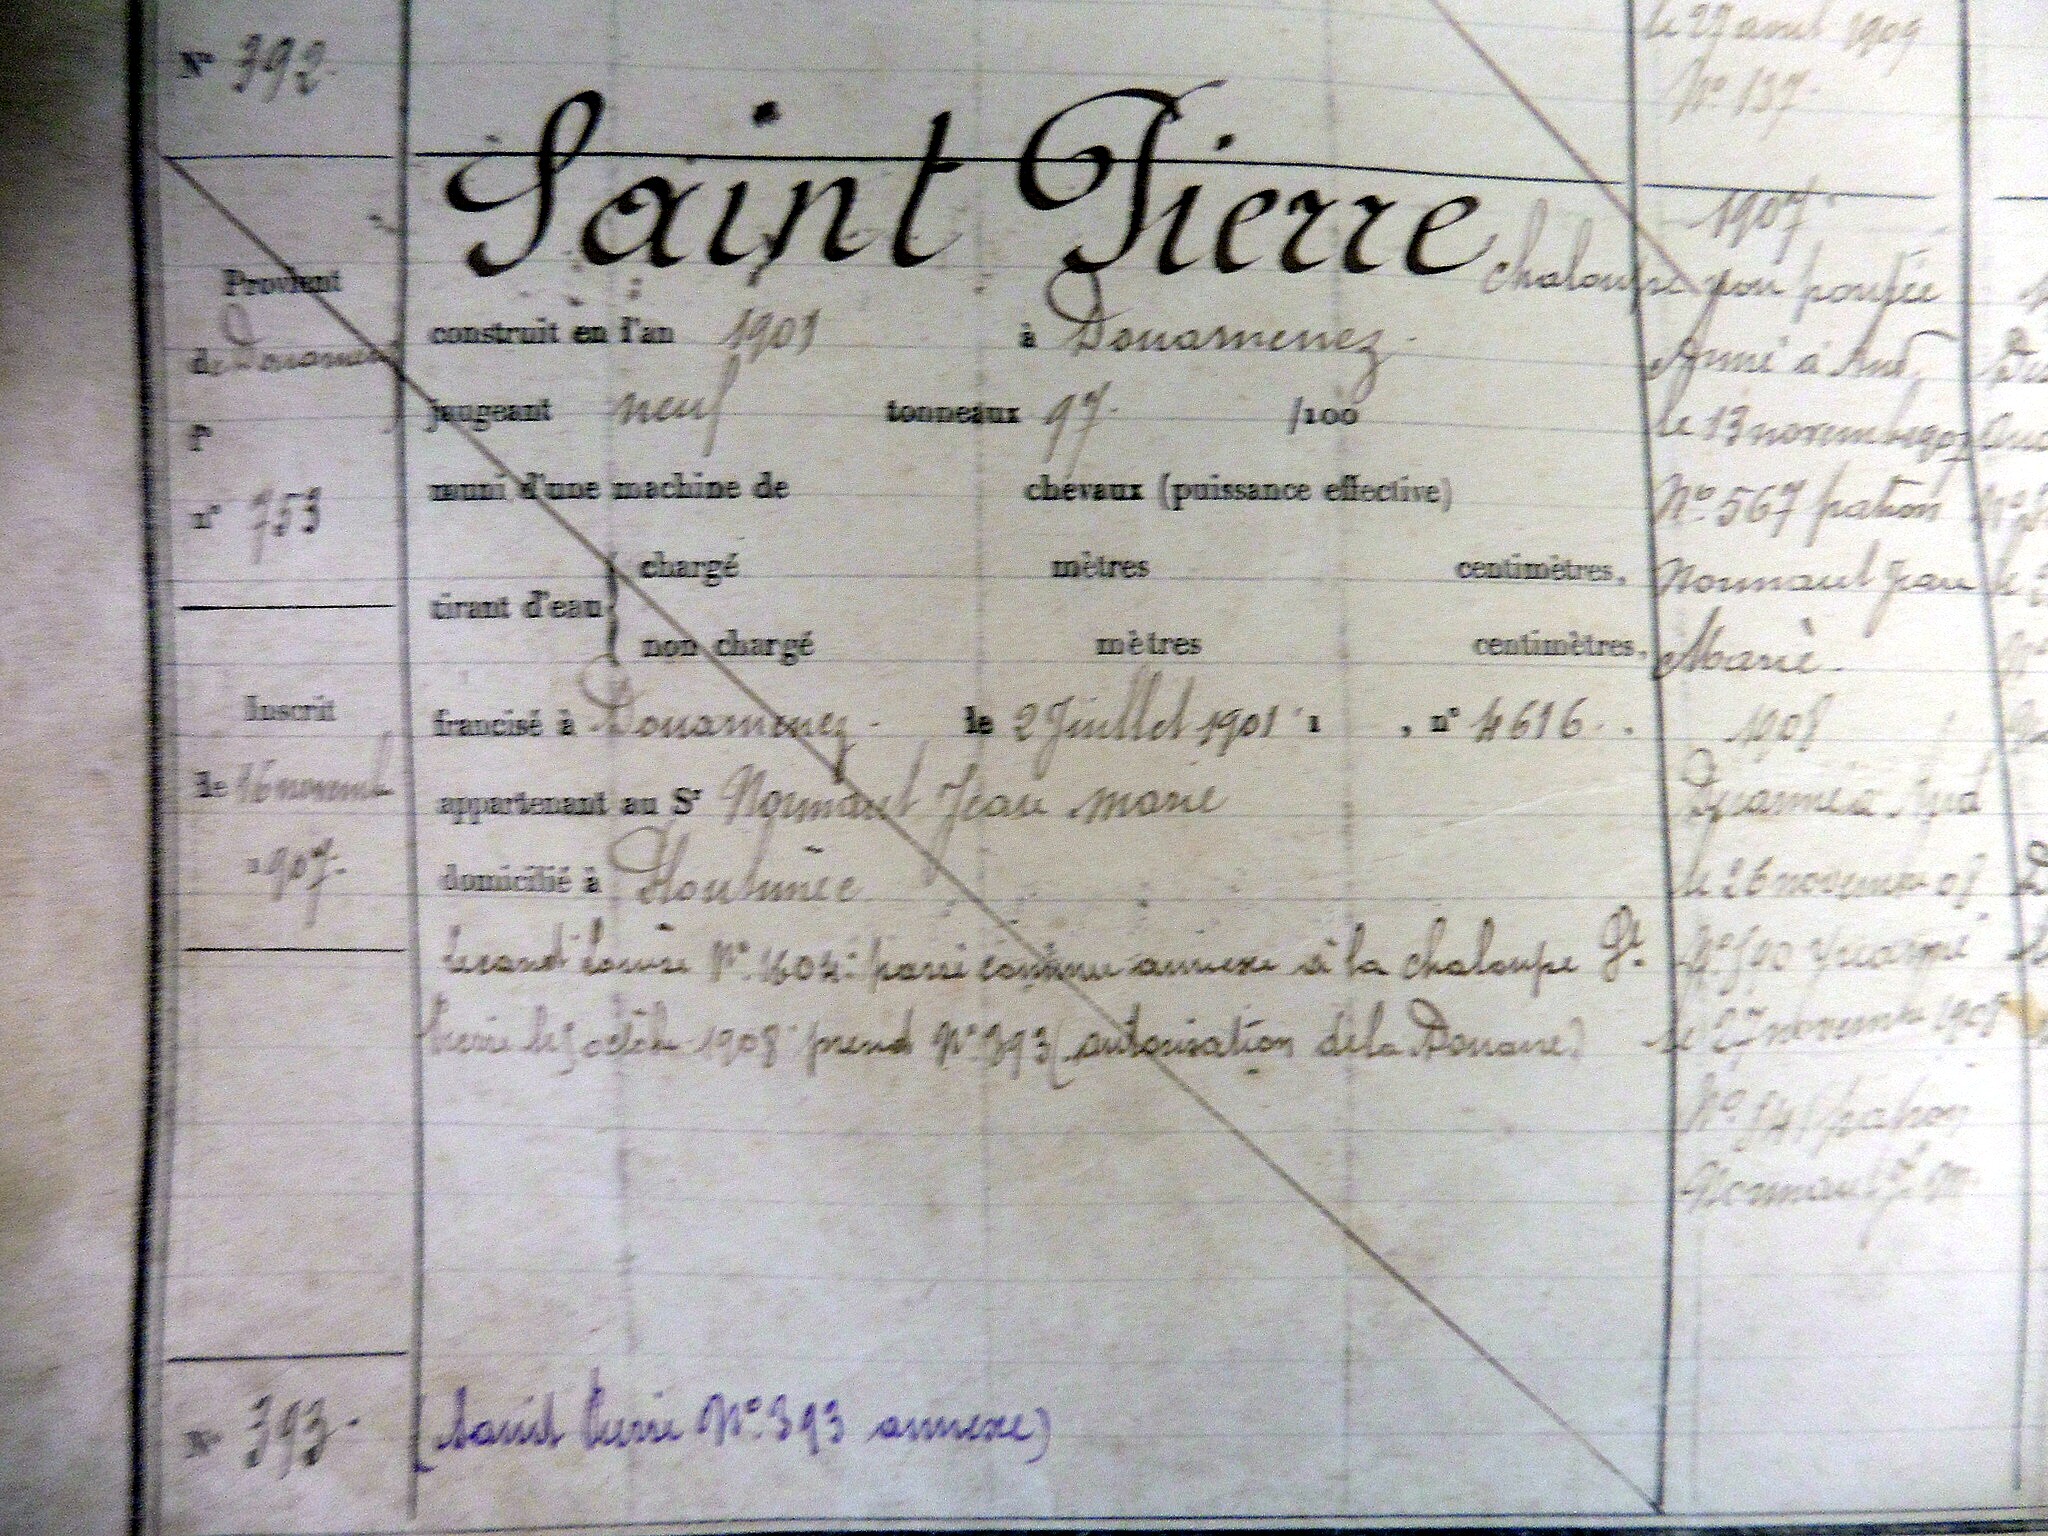 le 27 avril 1909
Nº 392.
Nº 137.
Saint Pierre
1907
Chaloupe non pontée
Provient
de Douarnenez
construit en l'an 1901 à Douarnenez.
Armé à Aud.
fº
jaugeant neuf tonneaux 97. /100
le 13 novembre 1907
nº 753
muni d'une machine de chevaux (puissance effective)
Nº 567 patron
tirant d'eau
chargé mètres centimètres,
Normant Jean
non chargé mètres centimètres,
Marie.
Inscrit
francisé à Douarnenez. le 2 Juillet 1901 , nº 4616.
1908
le 16 novemb
appartenant au Sr Normant Jean Marie
Désarmé à Aud
1907.
domicilié à Plouhinec
le 26 novembre 08
Nº 1604 annexe à la chaloupe St.
Nº
Pierre le octobre 1908 prend Nº 393 (autorisation de la Douane)
le 27 novembre 1908
Nº patron
Normant J. M.
Nº 393. (Saint Pierre Nº 393 annexe)